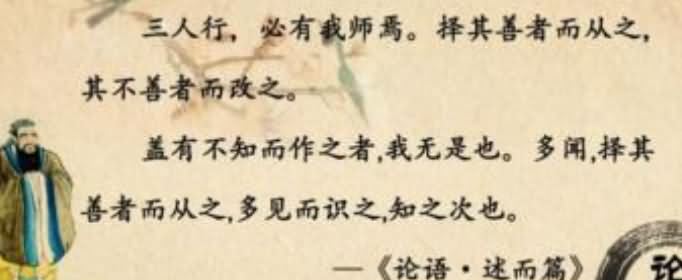 三人行，必有我师焉。择其善者而从之，
其不善者而改之。
盖有不知而作之者,我无是也。多闻,择其
善者而从之,多见而识之,知之次也。
—《论语·述而篇》
论